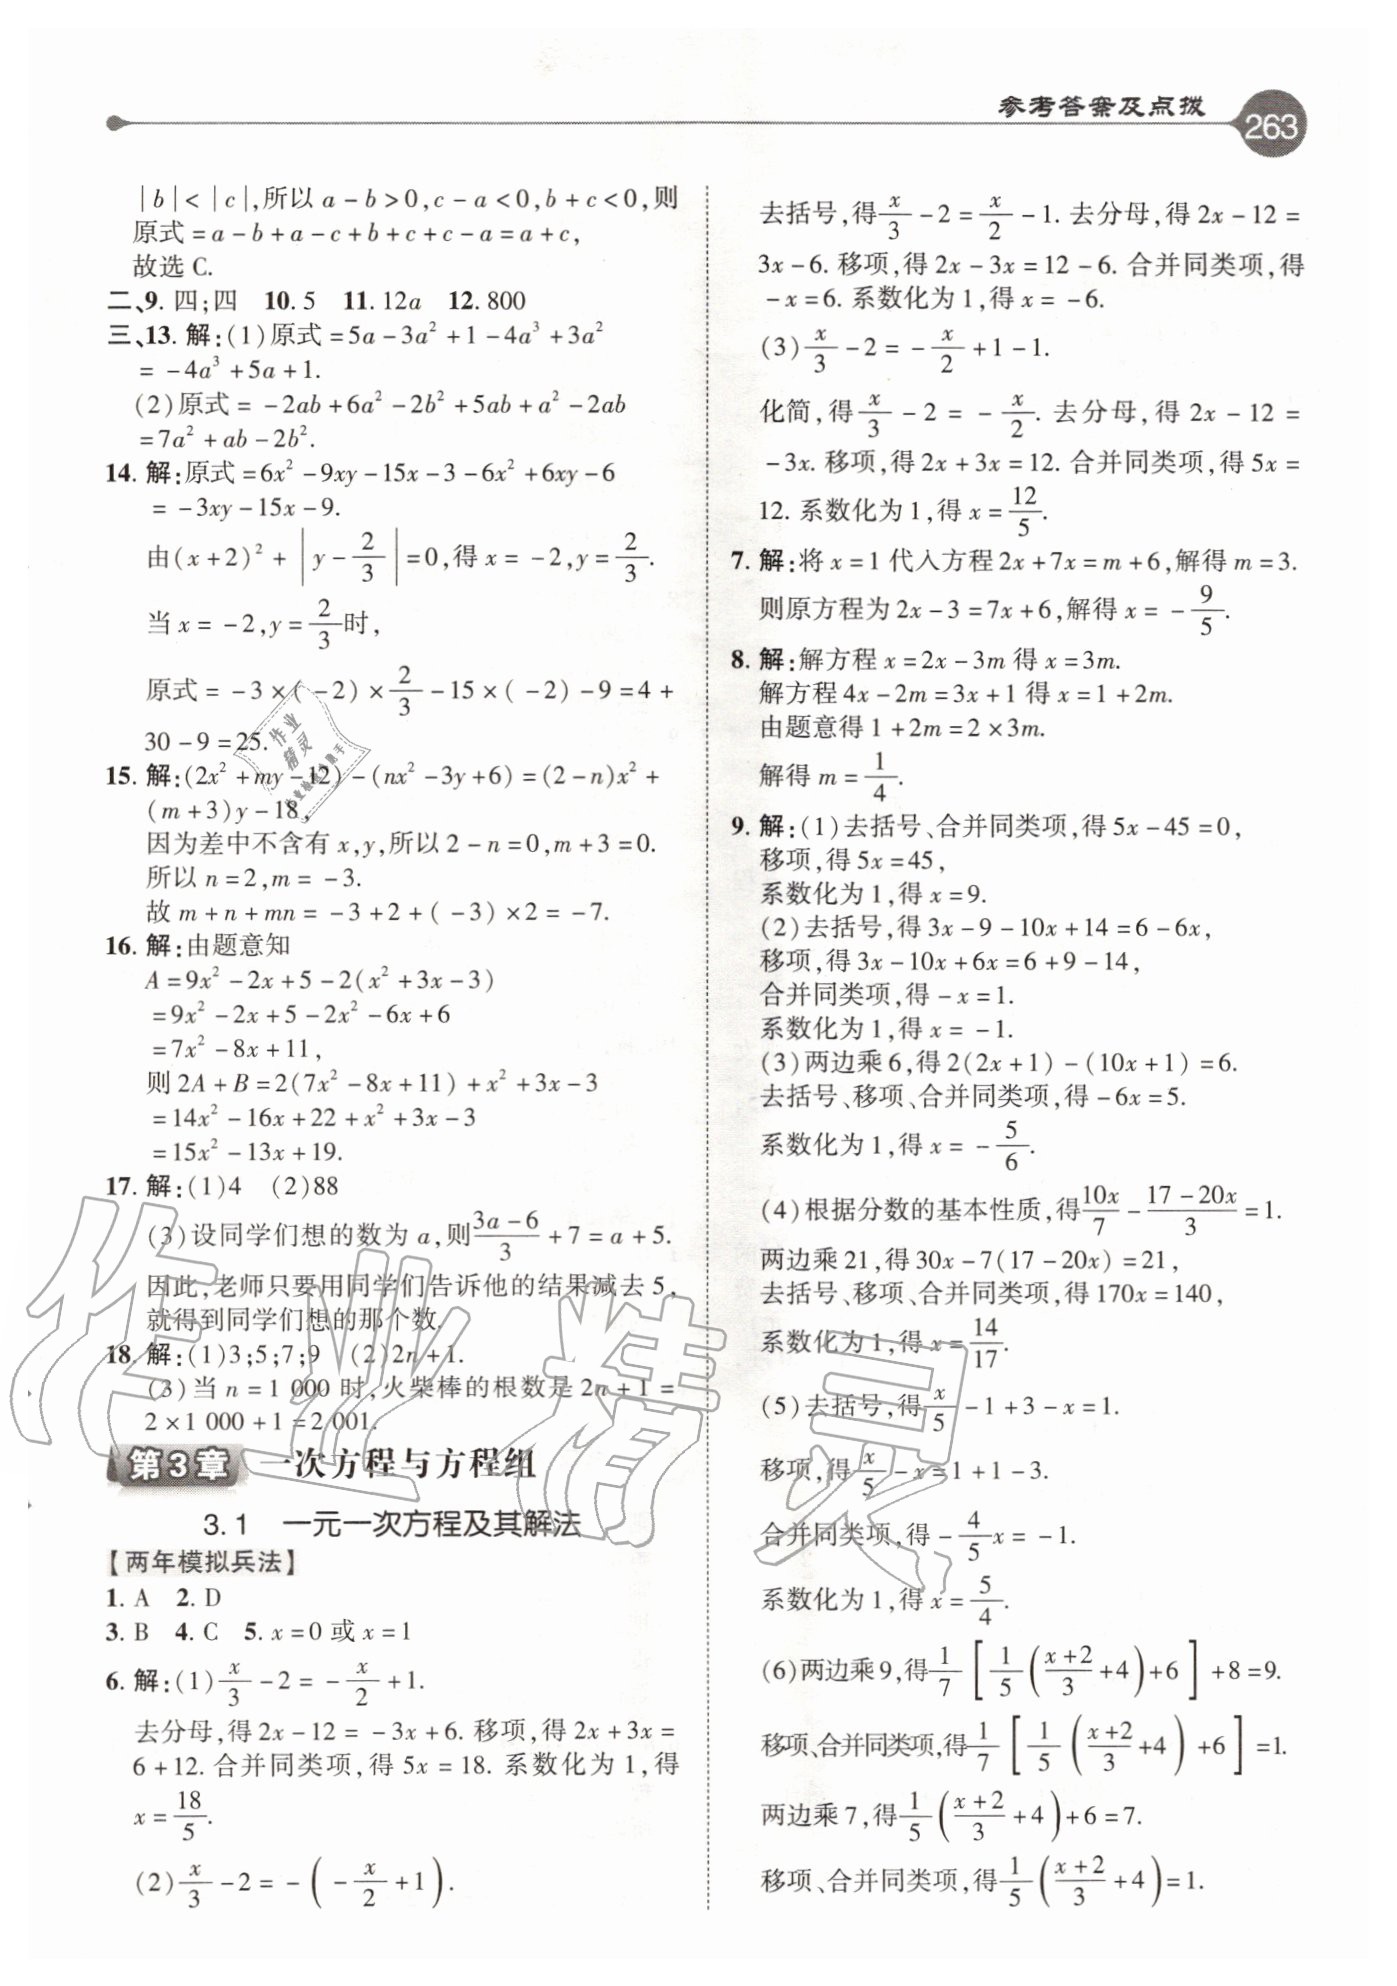 参考答案及点拨
263
|b|<|c|,所以 a-b>0,c-a<0,b+c<0,则
原式=a-b+a-c+b+c+c-a=a+c,
故选 C.
二、9. 四;四　10. 5　11. 12a　12. 800
三、13. 解:(1)原式=5a-3a²+1-4a³+3a²
=-4a³+5a+1.
(2)原式=-2ab+6a²-2b²+5ab+a²-2ab
=7a²+ab-2b².
14. 解:原式=6x²-9xy-15x-3-6x²+6xy-6
=-3xy-15x-9.
由(x+2)²+|y-2/3|=0,得 x=-2,y=2/3.
当 x=-2,y=2/3时,
原式=-3×(-2)×2/3-15×(-2)-9=4+
30-9=25.
15. 解:(2x²+my-12)-(nx²-3y+6)=(2-n)x²+
(m+3)y-18,
因为差中不含有 x,y,所以 2-n=0,m+3=0.
所以 n=2,m=-3.
故 m+n+mn=-3+2+(-3)×2=-7.
16. 解:由题意知
A=9x²-2x+5-2(x²+3x-3)
=9x²-2x+5-2x²-6x+6
=7x²-8x+11,
则 2A+B=2(7x²-8x+11)+x²+3x-3
=14x²-16x+22+x²+3x-3
=15x²-13x+19.
17. 解:(1)4　(2)88
(3)设同学们想的数为 a,则(3a-6)/3+7=a+5.
因此,老师只要用同学们告诉他的结果减去 5,
就得到同学们想的那个数.
18. 解:(1)3;5;7;9　(2)2n+1.
(3)当 n=1 000 时,火柴棒的根数是 2n+1=
2×1 000+1=2 001.
第3章　一次方程与方程组
3.1　一元一次方程及其解法
【两年模拟兵法】
1. A　2. D
3. B　4. C　5. x=0 或 x=1
6. 解:(1)x/3-2=-x/2+1.
去分母,得 2x-12=-3x+6. 移项,得 2x+3x=
6+12. 合并同类项,得 5x=18. 系数化为 1,得
x=18/5.
(2)x/3-2=-(-x/2+1).
去括号,得x/3-2=x/2-1. 去分母,得 2x-12=
3x-6. 移项,得 2x-3x=12-6. 合并同类项,得
-x=6. 系数化为 1,得 x=-6.
(3)x/3-2=-x/2+1-1.
化简,得x/3-2=-x/2. 去分母,得 2x-12=
-3x. 移项,得 2x+3x=12. 合并同类项,得 5x=
12. 系数化为 1,得 x=12/5.
7. 解:将 x=1 代入方程 2x+7x=m+6,解得 m=3.
则原方程为 2x-3=7x+6,解得 x=-9/5.
8. 解:解方程 x=2x-3m 得 x=3m.
解方程 4x-2m=3x+1 得 x=1+2m.
由题意得 1+2m=2×3m.
解得 m=1/4.
9. 解:(1)去括号、合并同类项,得 5x-45=0,
移项,得 5x=45,
系数化为 1,得 x=9.
(2)去括号,得 3x-9-10x+14=6-6x,
移项,得 3x-10x+6x=6+9-14,
合并同类项,得-x=1.
系数化为 1,得 x=-1.
(3)两边乘 6,得 2(2x+1)-(10x+1)=6.
去括号、移项、合并同类项,得-6x=5.
系数化为 1,得 x=-5/6.
(4)根据分数的基本性质,得10x/7-(17-20x)/3=1.
两边乘 21,得 30x-7(17-20x)=21,
去括号、移项、合并同类项,得 170x=140,
系数化为 1,得 x=14/17.
(5)去括号,得x/5-1+3-x=1.
移项,得x/5-x=1+1-3.
合并同类项,得-4/5x=-1.
系数化为 1,得 x=5/4.
(6)两边乘 9,得1/7[1/5((x+2)/3+4)+6]+8=9.
移项、合并同类项,得1/7[1/5((x+2)/3+4)+6]=1.
两边乘 7,得1/5((x+2)/3+4)+6=7.
移项、合并同类项,得1/5((x+2)/3+4)=1.
作业精灵
作业
精灵